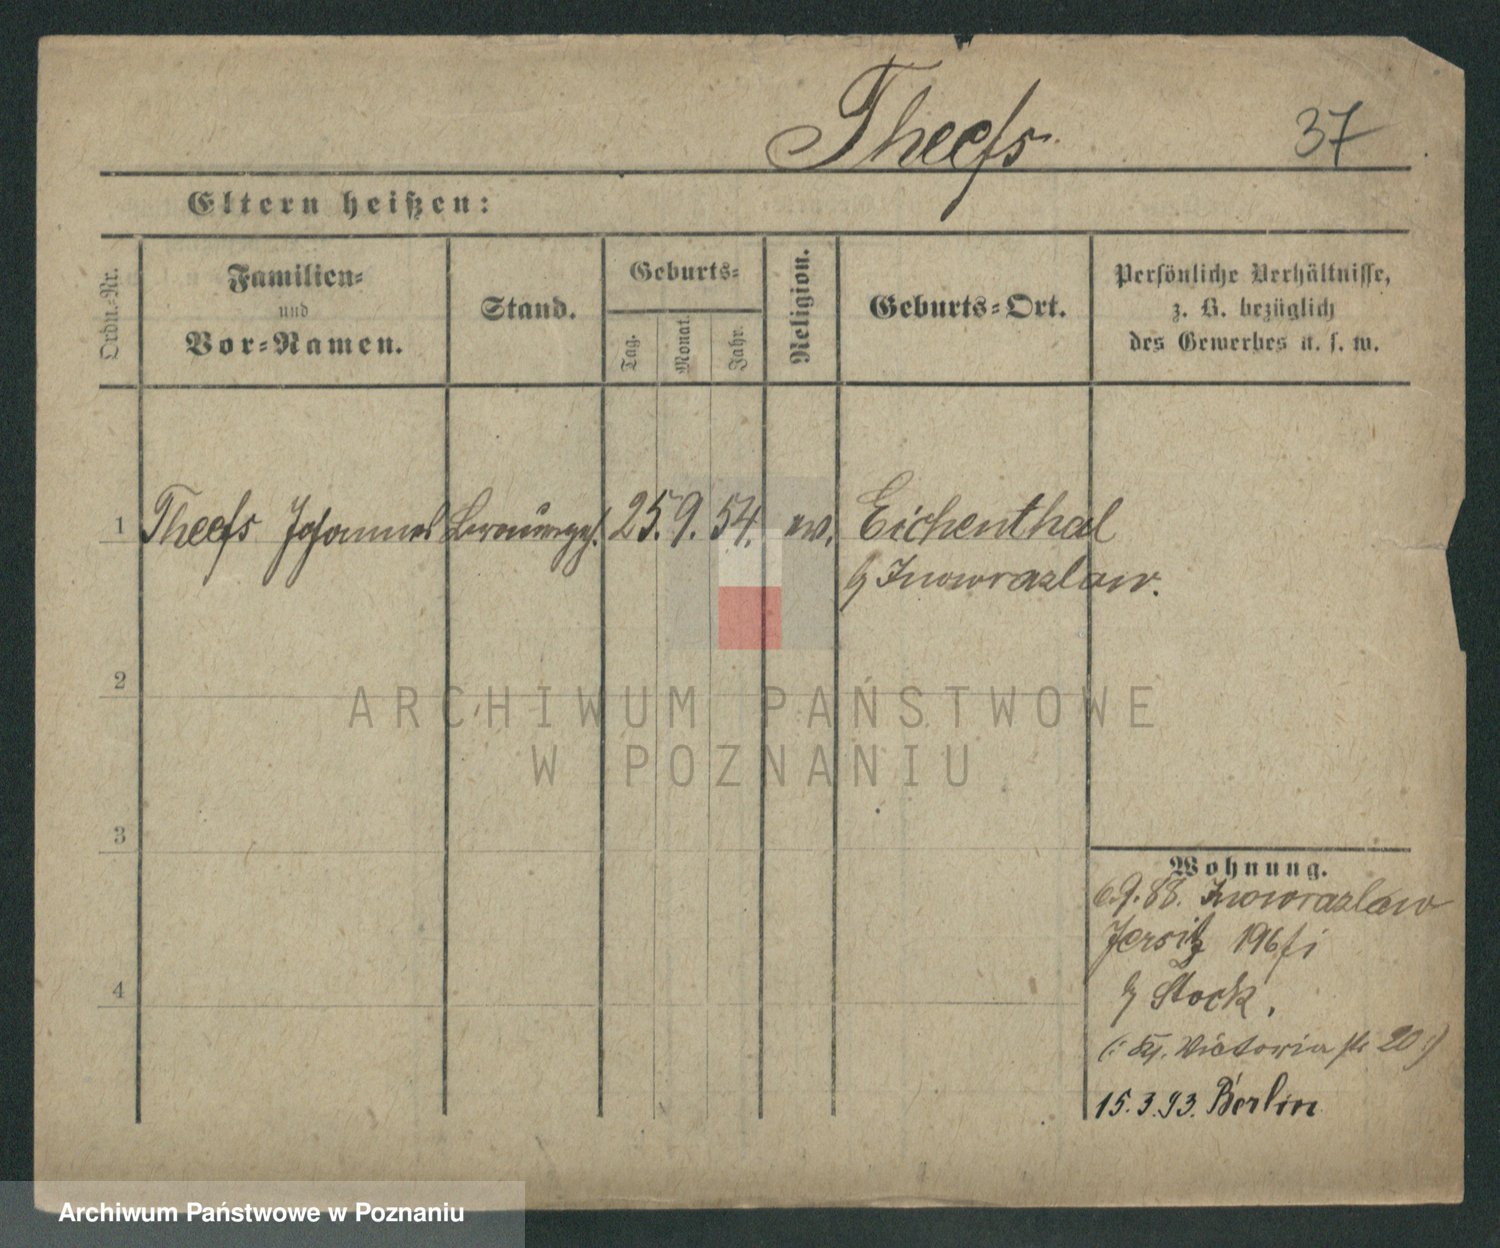 Theefs
37
Eltern heißen:
Ordn.-Nr.
Familien-
und
Vor-Namen.
Stand.
Geburts-
Tag.
Monat.
Jahr.
Religion.
Geburts-Ort.
Persönliche Verhältnisse,
z. B. bezüglich
des Gewerbes u. s. w.
1 Theefs Johannes 25. 9. 54. ev. Eichenthal
Inowrazlaw.
2
ARCHIWUM PAŃSTWOWE
W POZNANIU
3
Wohnung.
6.9.88. Inowrazlaw
Jersitz 196
4
b/ Stock,
Victoria str 20
15.3.93. Berlin
Archiwum Państwowe w Poznaniu